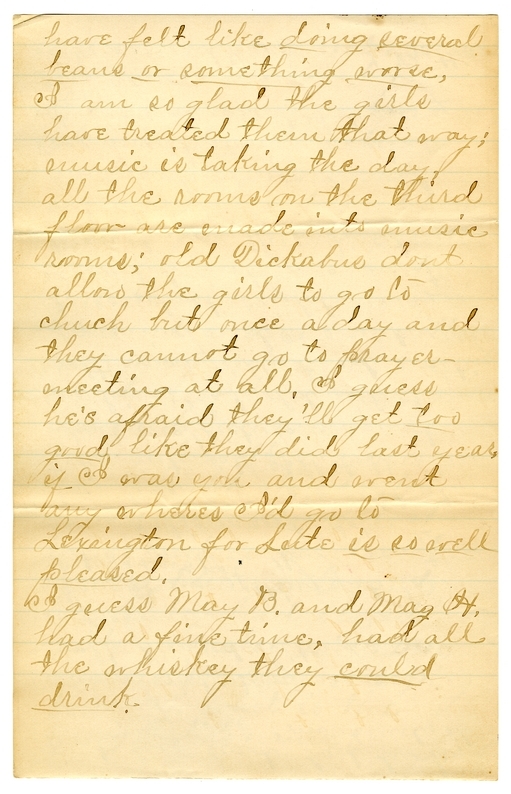 have felt like doing several
beans or something worse,
I am so glad the girls
have treated them that way;
music is taking the day,
all the rooms on the third
floor are made into music
rooms; old Dickabus dont
allow the girls to go to
chuch but once a day and
they cannot go to prayer-
meeting at all, I guess
he's afraid they'll get too
good like they did last year,
if I was you and went
any wheres I'd go to
Lexington for Lute is so well
pleased.
I guess May B. and Mag H.
had a fine time, had all
the whiskey they could
drink.